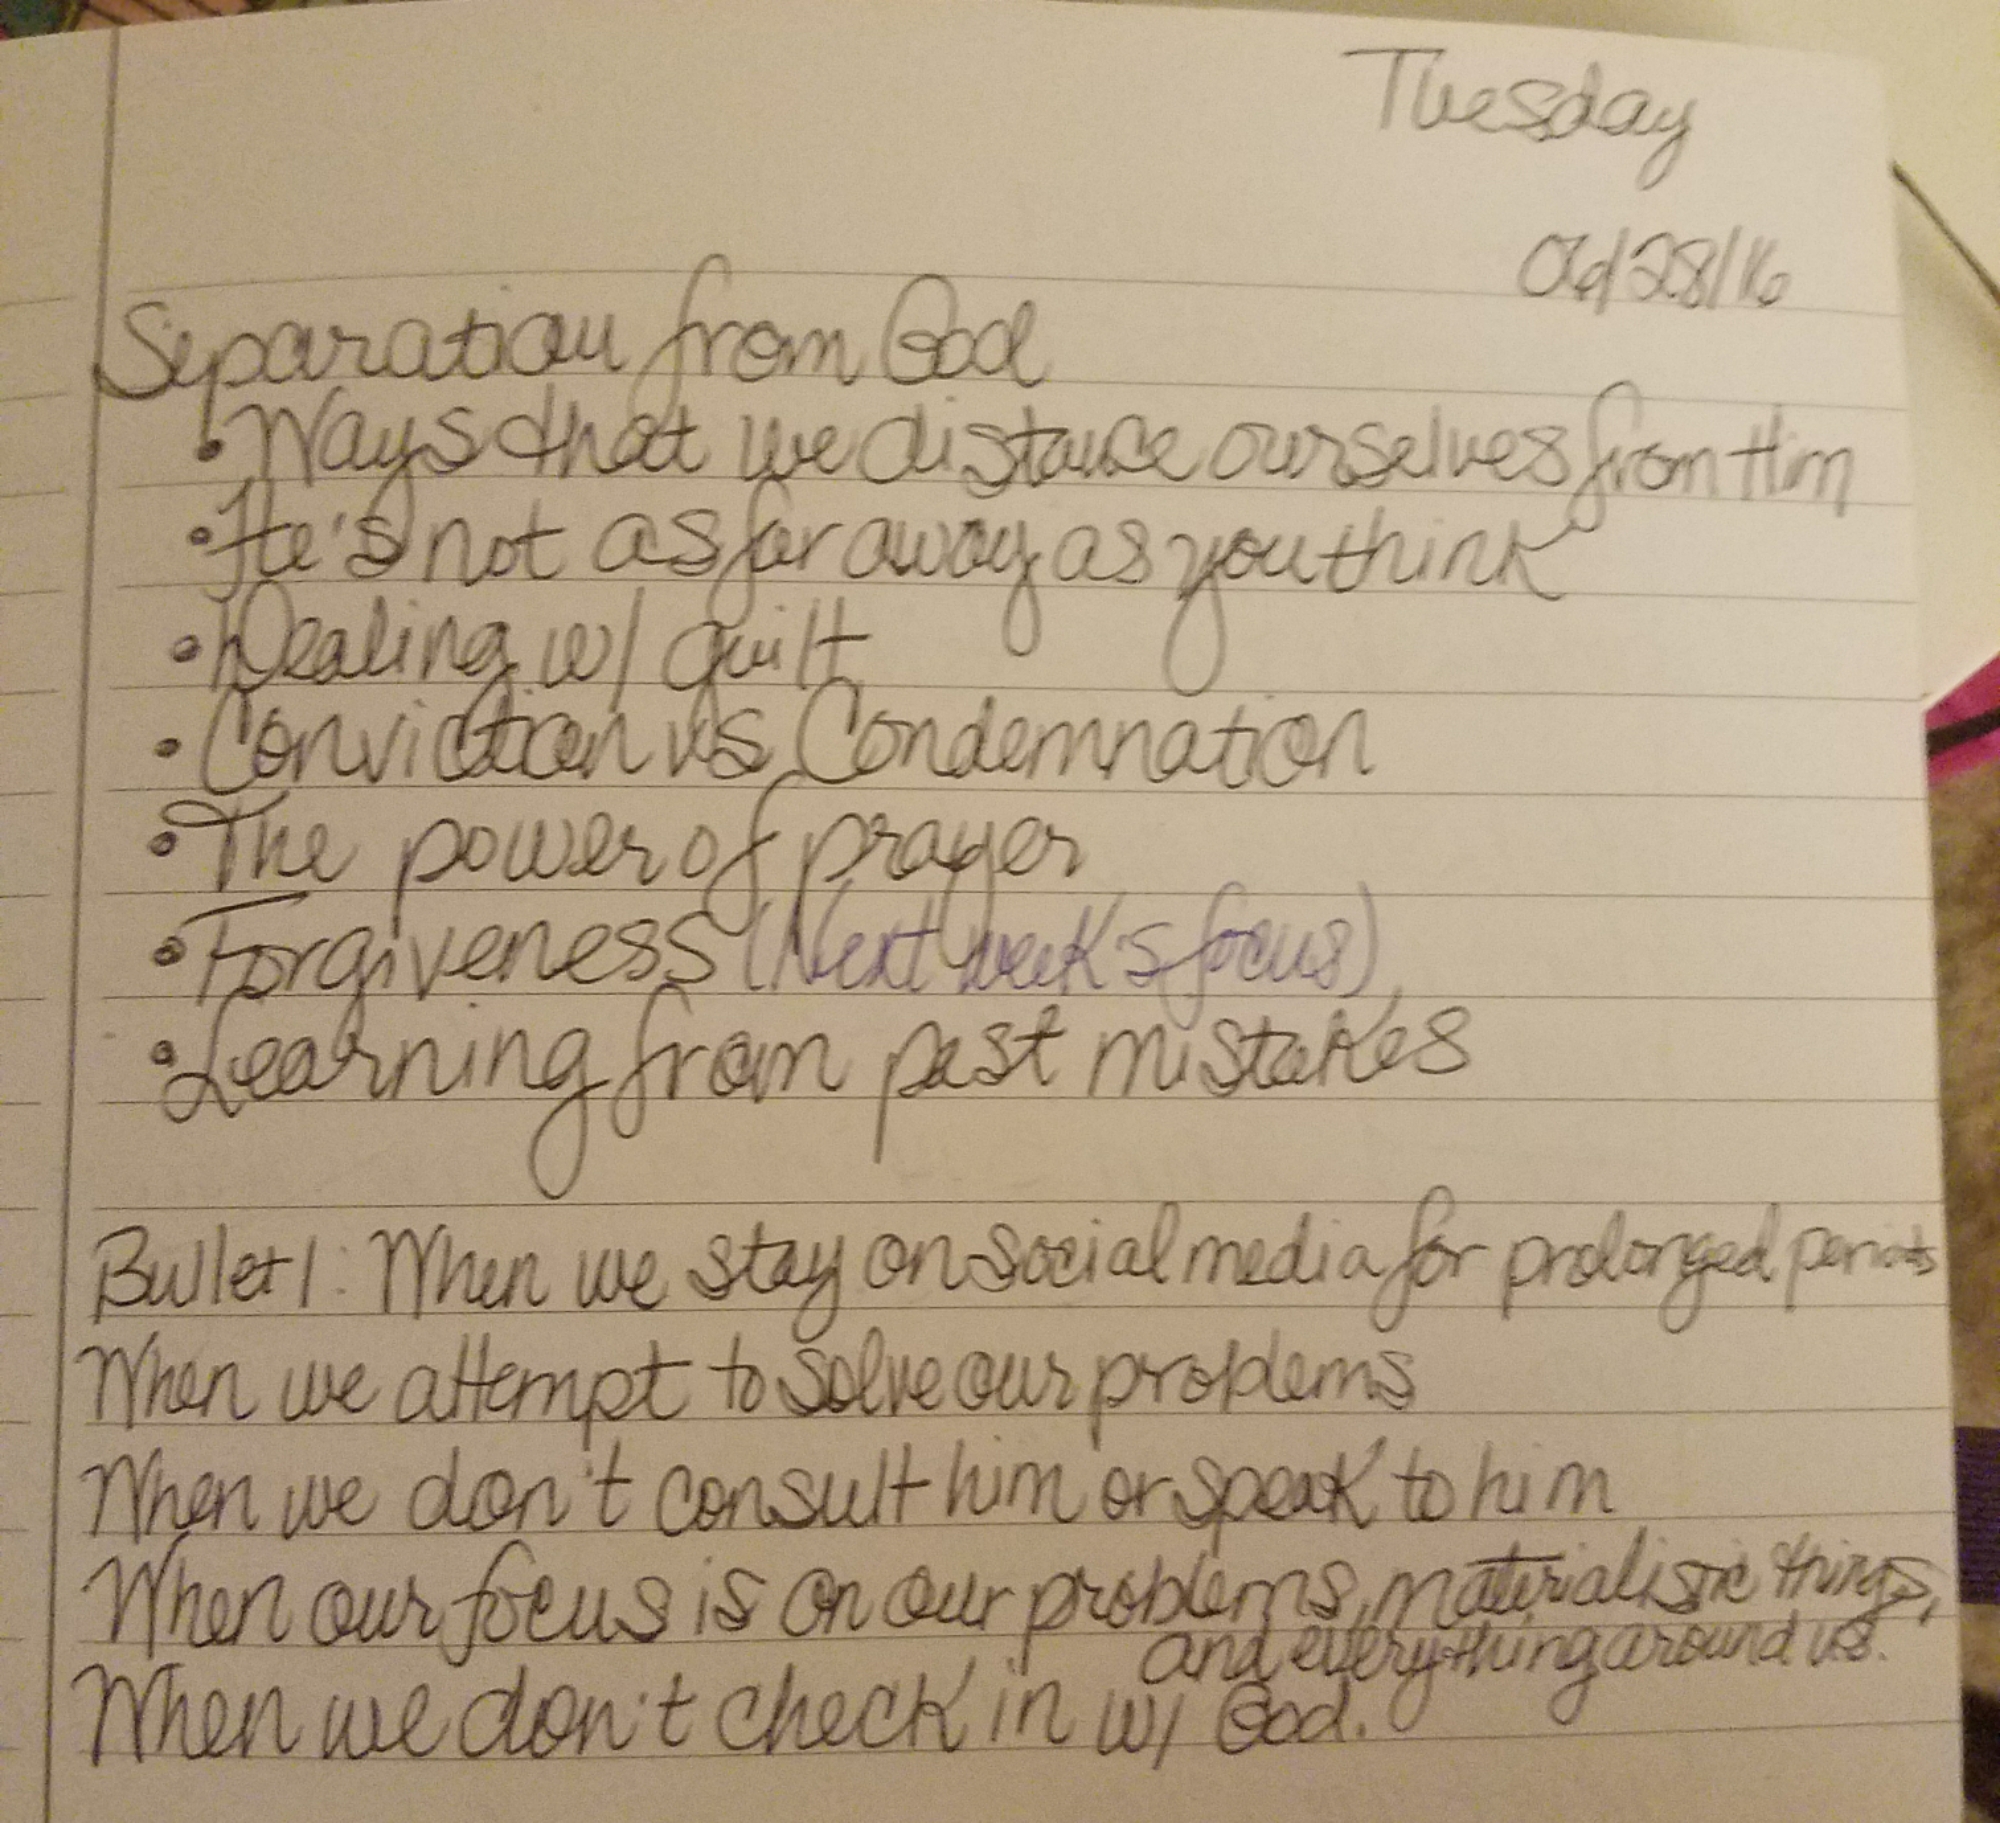 Tuesday
06/28/16
Separation from God
• Ways that we distance ourselves from Him
• He's not as far away as you think
• Dealing w/ guilt
• Conviction vs Condemnation
• The power of prayer
• Forgiveness (Next week's focus)
• Learning from past mistakes
Bullet 1: When we stay on social media for prolonged periods
When we attempt to solve our problems
When we don't consult him or speak to him
When our focus is on our problems, materialistic things,
and everything around us.
When we don't check in w/ God.